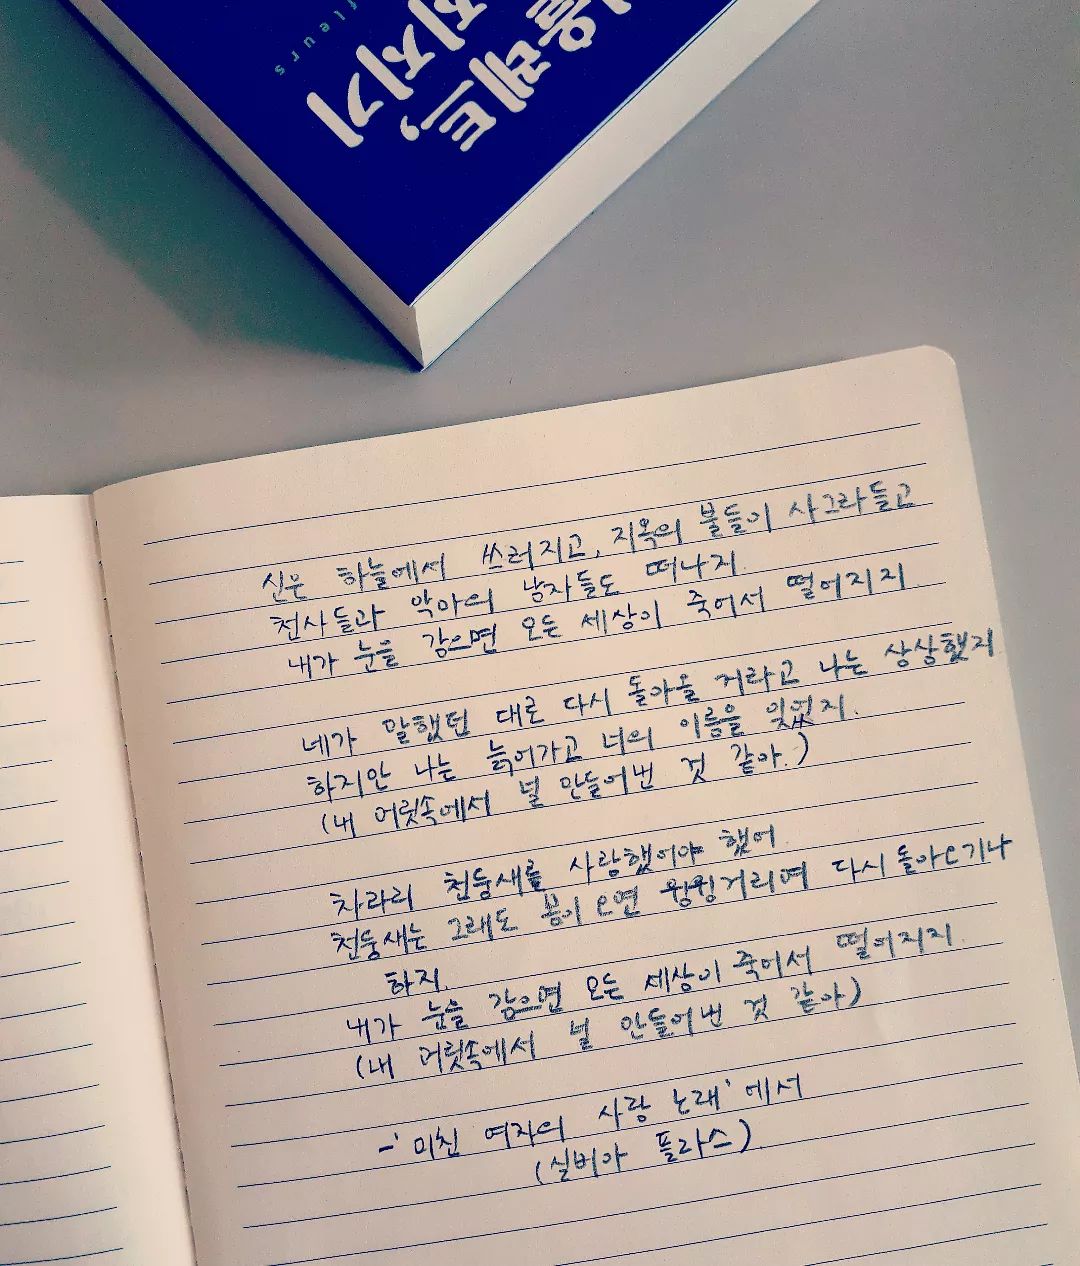 올레트,
지기
fleurs
신은 하늘에서 쓰러지고, 지옥의 불들이 사그라들고
천사들과 악마의 남자들도 떠나지.
내가 눈을 감으면 모든 세상이 죽어서 떨어지지
네가 말했던 대로 다시 돌아올 거라고 나는 상상했지
하지만 나는 늙어가고 너의 이름을 잊었지.
(내 머릿속에서 널 만들어낸 것 같아.)
차라리 천둥새를 사랑했어야 했어.
천둥새는 그래도 봄이 오면 윙윙거리며 다시 돌아오기나
하지.
내가 눈을 감으면 모든 세상이 죽어서 떨어지지.
(내 머릿속에서 널 만들어낸 것 같아)
-'미친 여자의 사랑 노래'에서
(실비아 플라스)